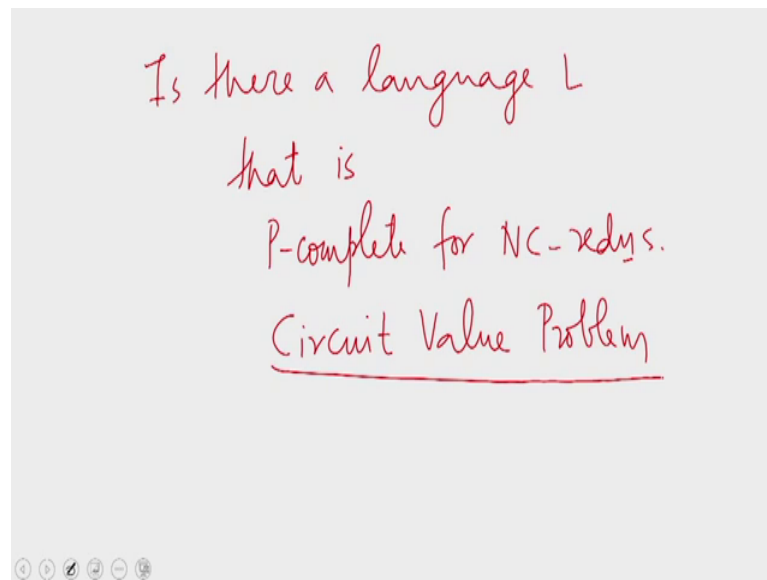 Is there a language L
that is
P-complete for NC-redns.
Circuit Value Problem